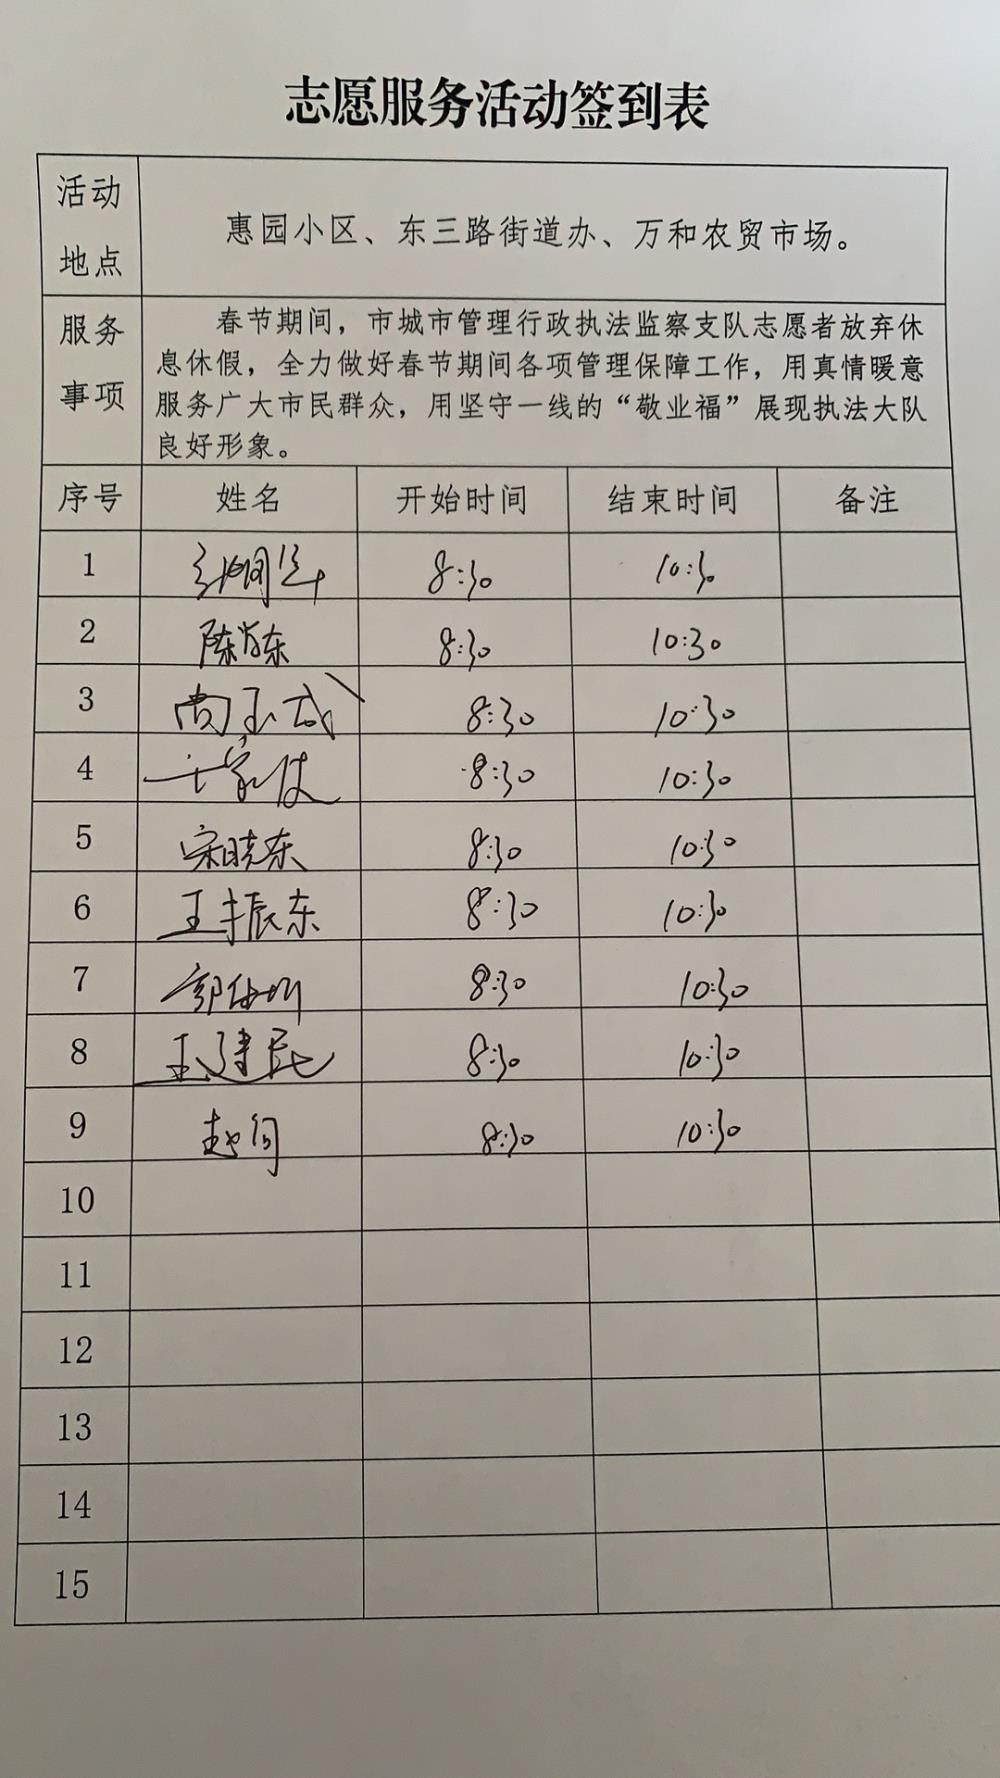 志愿服务活动签到表
活动地点
惠园小区、东三路街道办、万和农贸市场。
服务事项
春节期间，市城市管理行政执法监察支队志愿者放弃休
息休假，全力做好春节期间各项管理保障工作，用真情暖意
服务广大市民群众，用坚守一线的“敬业福”展现执法大队
良好形象。
序号 姓名 开始时间 结束时间 备注
1 8:30 10:30
2 8:30 10:30
3 8:30 10:30
4 8:30 10:30
5 宋晓东 8:30 10:30
6 王振东 8:30 10:30
7 8:30 10:30
8 王建民 8:30 10:30
9 8:30 10:30
10
11
12
13
14
15